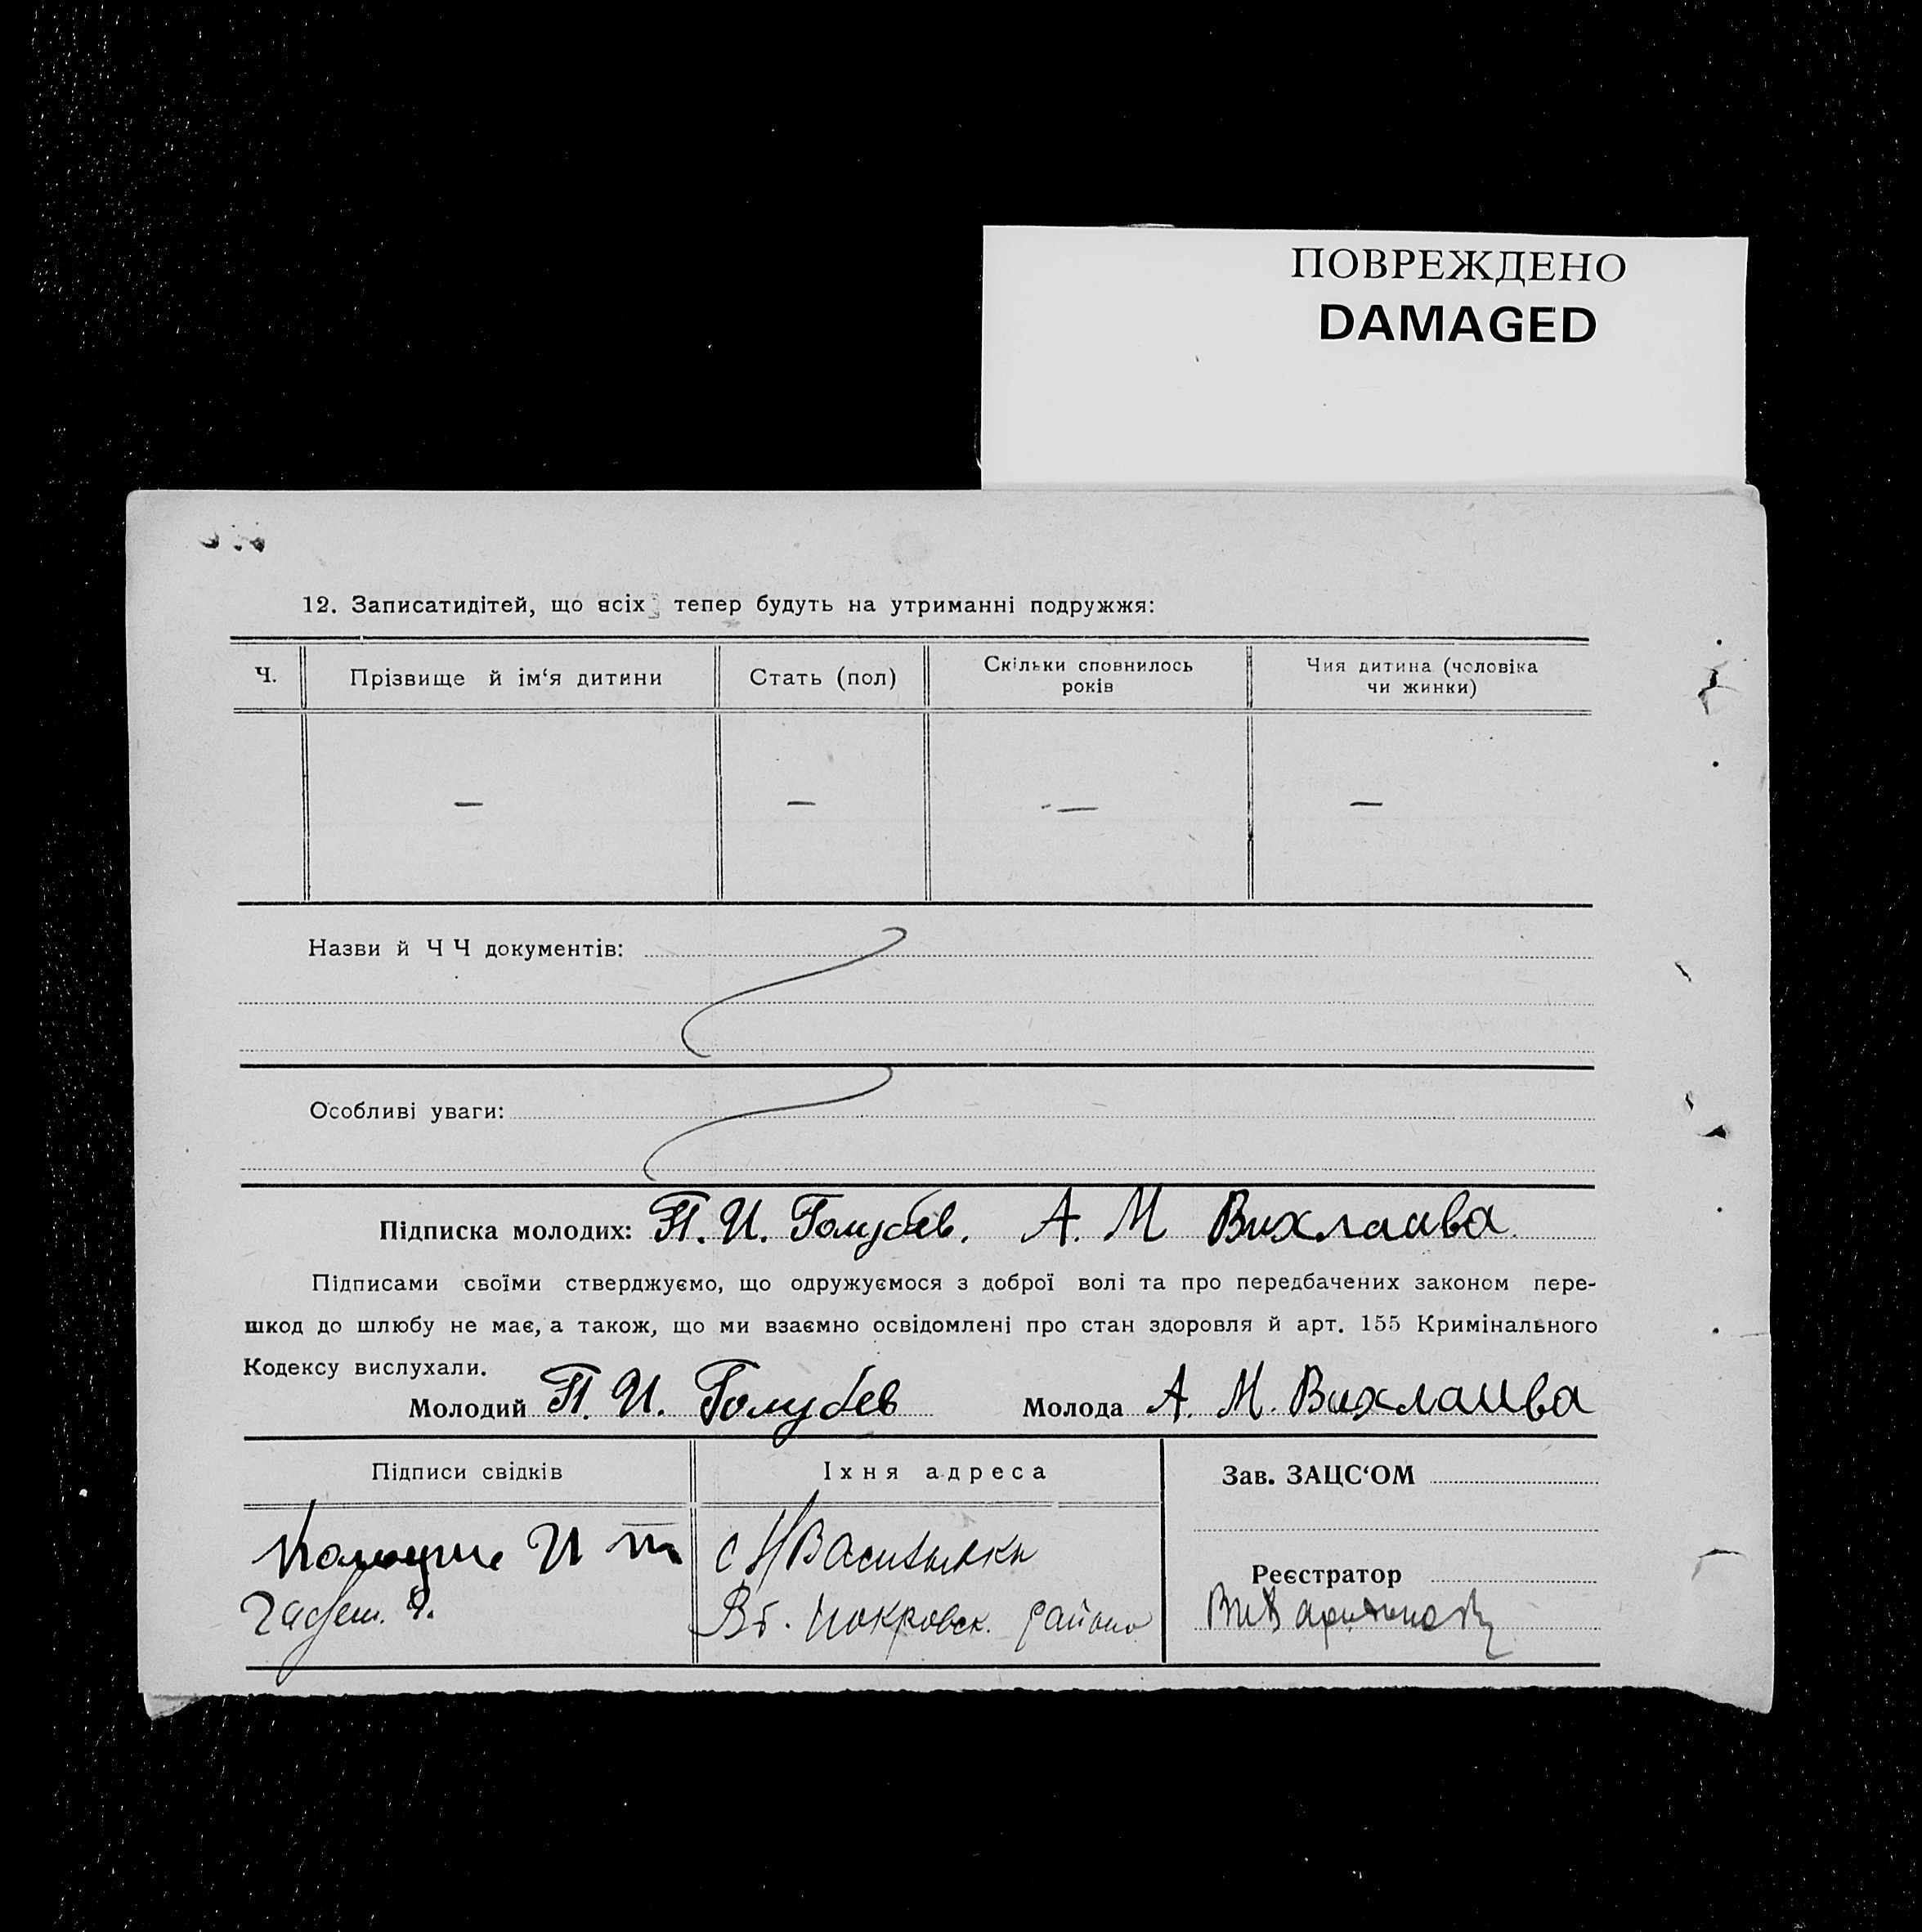 ПОВРЕЖДЕНО
DAMAGED
12. Записатидітей, що всіх тепер будуть на утриманні подружжя:
Ч.
Прізвище й ім‘я дитини
Стать (пол)
Скільки сповнилось
років
Чия дитина (чоловіка
чи жинки)
— — — —
Назви й Ч Ч документів:
Особливі уваги:
Підписка молодих: П. И. Голубев. А. М Вихлаива
Підписами своїми стверджуємо, що одружуємося з доброї волі та про передбачених законом пере-
шкод до шлюбу не має, а також, що ми взаємно освідомлені про стан здоровля й арт. 155 Кримінального
Кодексу вислухали.
Молодий П. И. Голубев Молода А. М. Вихлаива
Підписи свідків
Іхня адреса
Зав. ЗАЦС‘ОМ
И
с
Реєстратор
Покровск. району